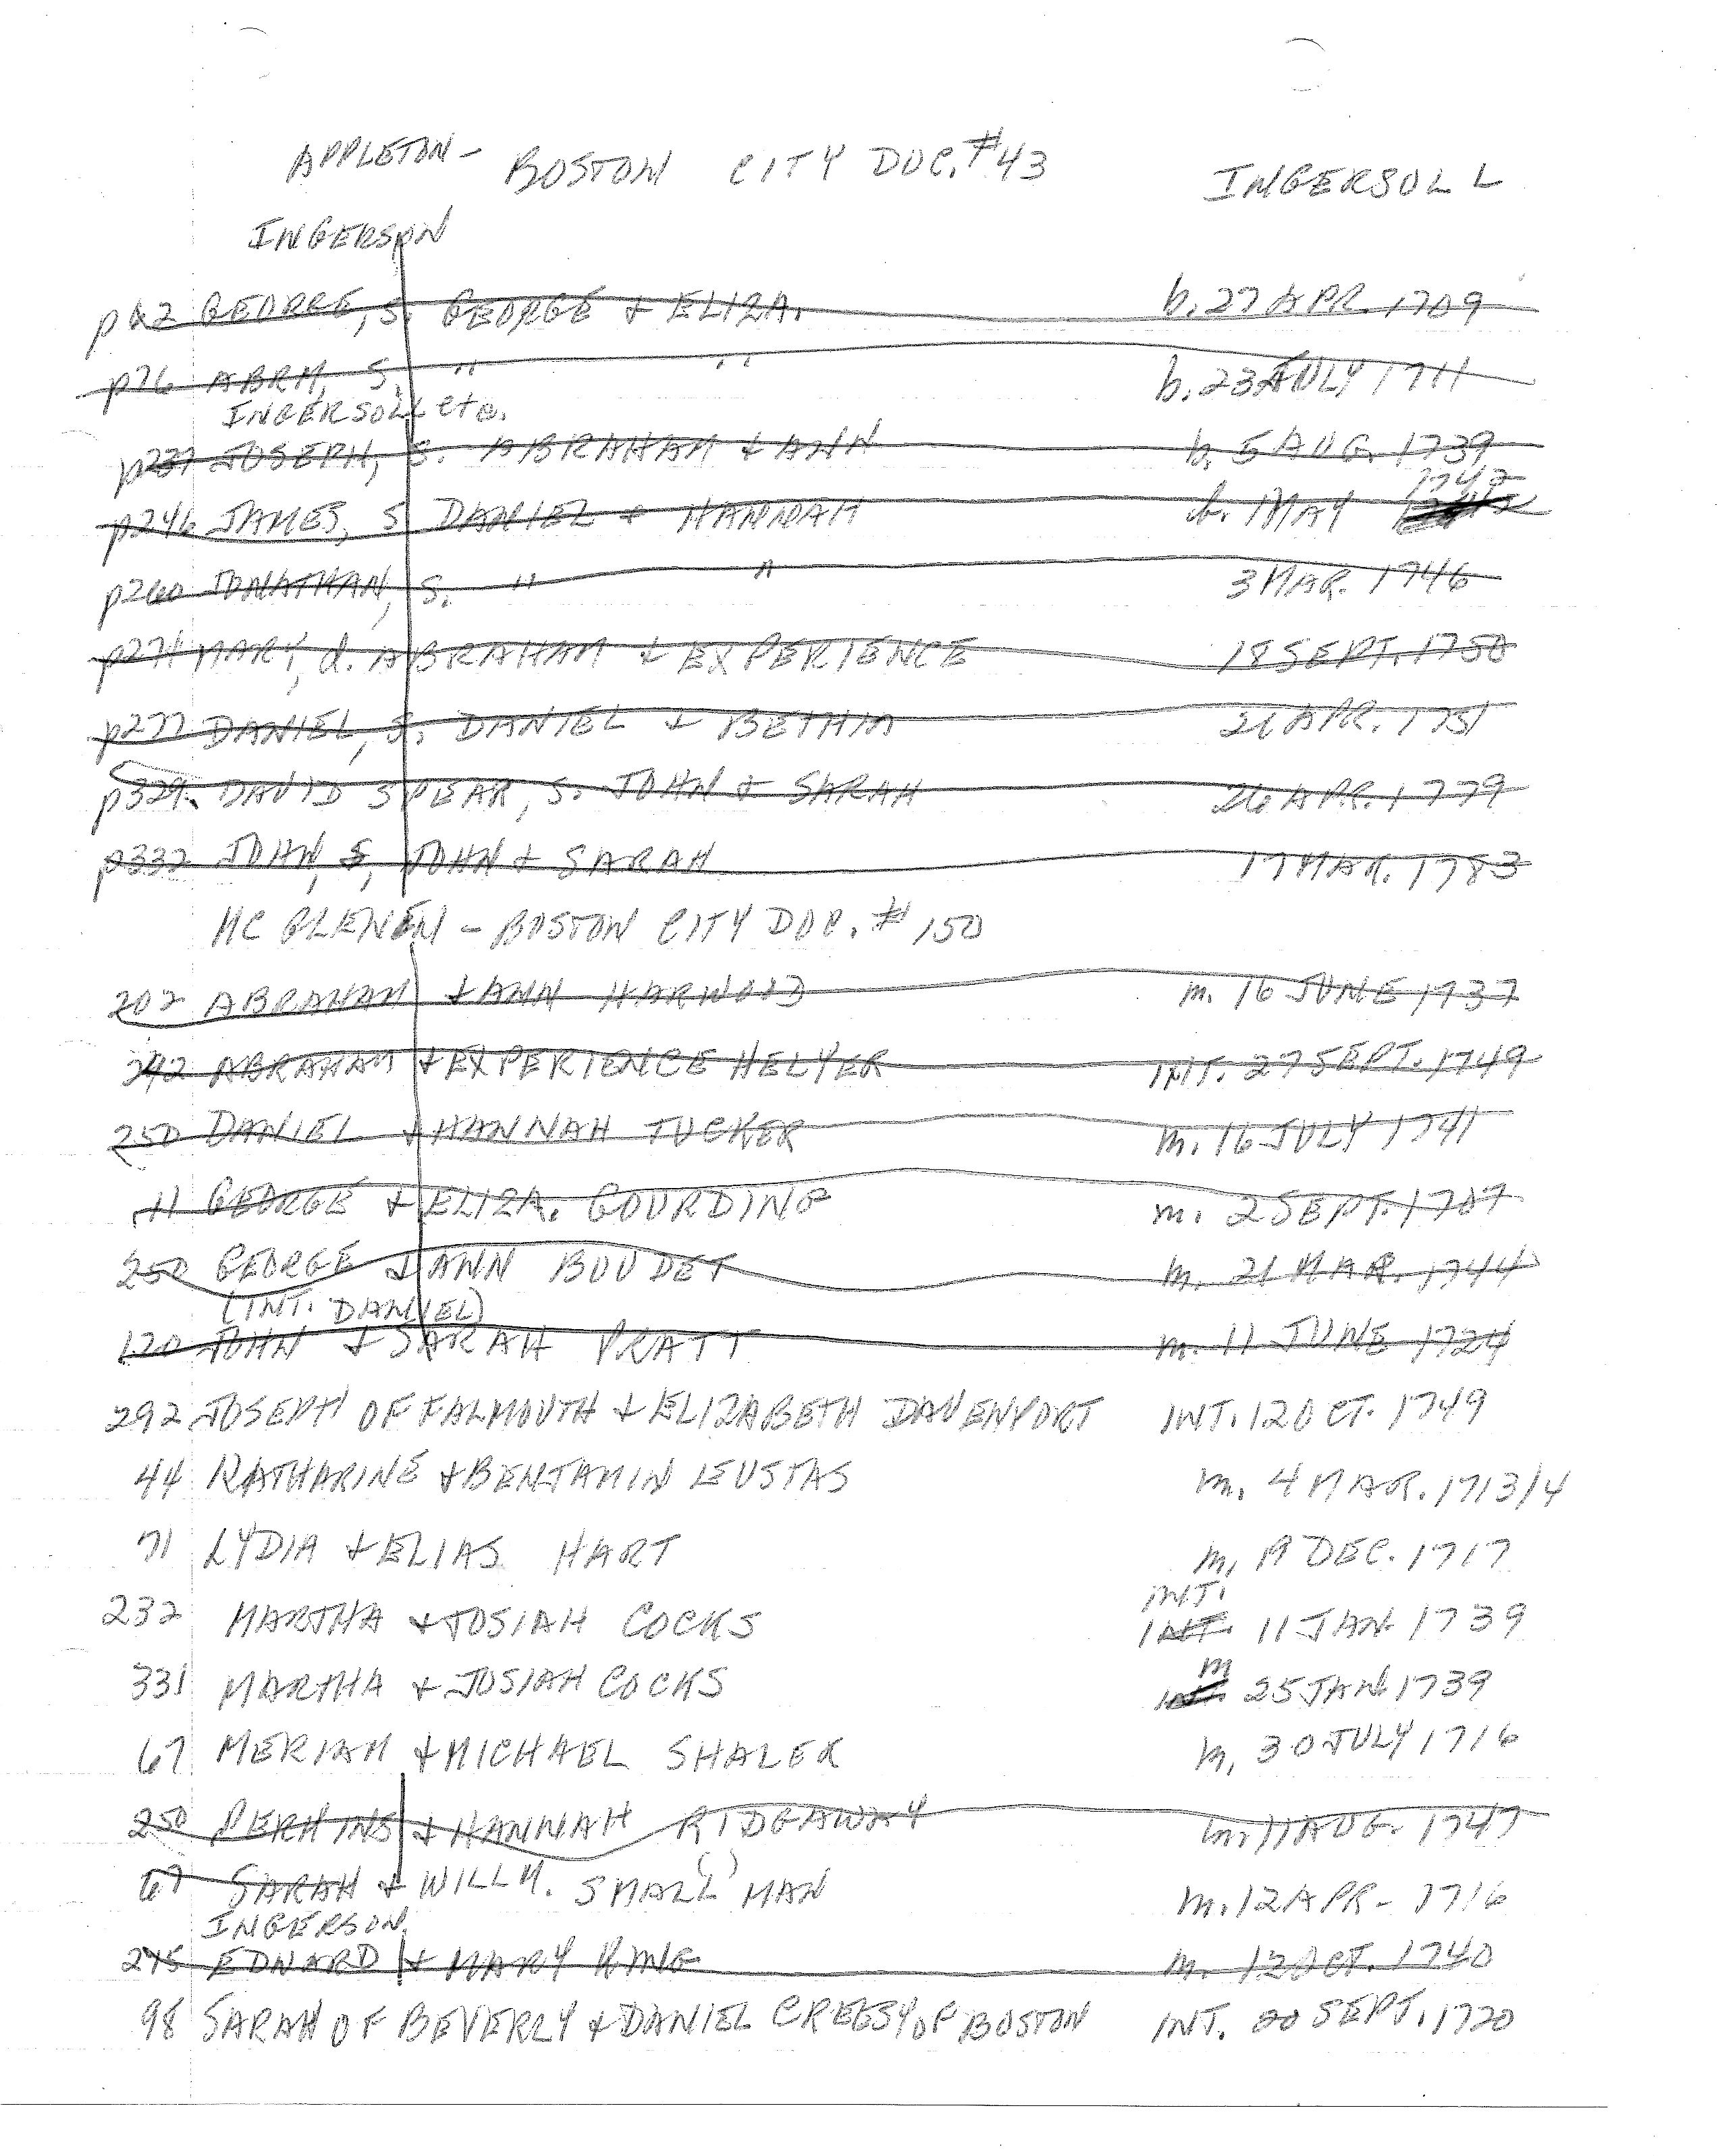 APPLETON - BOSTON CITY DOC. #43 INGERSOLL
INGERSON
p62 GEORGE, S. GEORGE & ELIZA. b. 27 APR. 1709
p76 ABRM, S. " " b. 23 JULY 1711
INGERSOLL etc.
p237 JOSEPH, S. ABRAHAM & ANN b. 5 AUG. 1739
1742
p246 JAMES, S. DANIEL & HANNAH b. 1 MAY
p260 JONATHAN, S. " " 3 MAR. 1746
p274 MARY, d. ABRAHAM & EXPERIENCE 18 SEPT. 1750
p277 DANIEL, S. DANIEL & BETHIA 21 APR. 1751
p329 DAVID SPEAR, S. JOHN & SARAH 26 APR. 1779
p332 JOHN, S, JOHN & SARAH 17 MAR. 1783
MC GLENEN - BOSTON CITY DOC. #150
202 ABRAHAM & ANN HARWOOD m. 16 JUNE 1737
292 ABRAHAM & EXPERIENCE HELYER INT. 27 SEPT. 1749
250 DANIEL & HANNAH TUCKER m. 16 JULY 1741
11 GEORGE & ELIZA. GOURDING m. 2 SEPT. 1707
250 GEORGE & ANN BOUDET m. 21 MAR. 1744
(INT. DANIEL)
120 JOHN & SARAH PRATT m. 11 JUNE 1724
292 JOSEPH OF FALMOUTH & ELIZABETH DAVENPORT INT. 12 OCT. 1749
44 KATHARINE & BENJAMIN EUSTAS m. 4 MAR. 1713/4
71 LYDIA & ELIAS HART m, 19 DEC. 1717
INT.
232 MARTHA & JOSIAH COCKS INT. 11 JAN. 1739
m
331 MARTHA & JOSIAH COCKS INT. 25 JAN. 1739
67 MERIAM & MICHAEL SHALER m, 30 JULY 1716
250 PERKINS & HANNAH RIDGAWAY m. 11 AUG. 1747
67 SARAH & WILLM. SMALL MAN m. 12 APR - 1716
INGERSON.
215 EDWARD & MARY KING m. 12 OCT. 1740
98 SARAH OF BEVERLY & DANIEL CREESY OF BOSTON INT. 20 SEPT. 1720